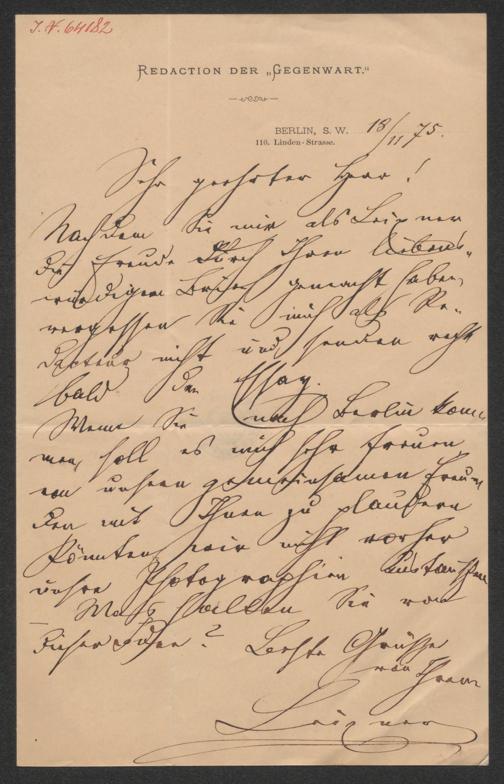 I. N. 64182
REDACTION DER „GEGENWART."
BERLIN, S. W. 18/11 75.
110. Linden-Strasse.
Sehr geehrter Herr!
Nachdem Sie mir als Leixner
die Freude durch Ihren liebens-
würdigen Besuch gemacht haben,
vergessen Sie mich als Re-
dacteur nicht und senden recht
bald den Essay.
Wenn Sie nach Berlin kom-
men, soll es mich sehr freuen
von unsern gemeinsamen Freun-
den mit Ihnen zu plaudern
Könnten wir nicht vorher
unsre Photographien austauschen
Was halten Sie von
dieser Idee? Beste Grüsse
von Ihrem
Leixner